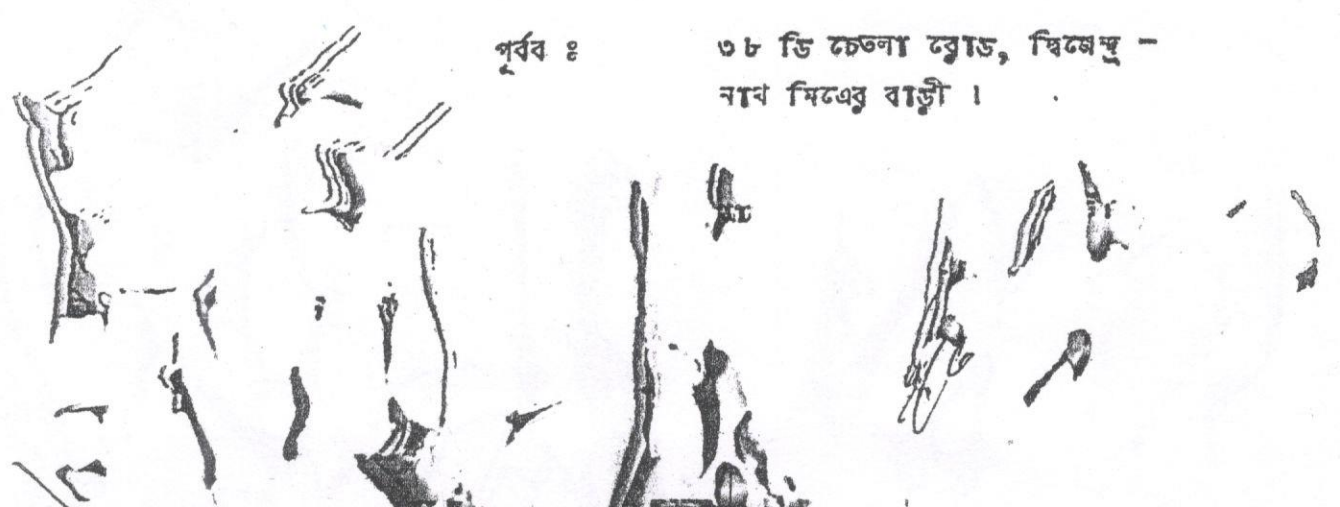 পূর্বব ঃ ৩৮ ডি চেতলা রোড, দ্বিজেন্দ্র –
নাথ মিত্রের বাড়ী ।